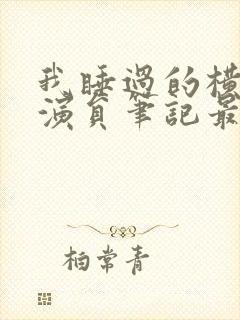 我睡過的橫
演員筆記最
柏常青